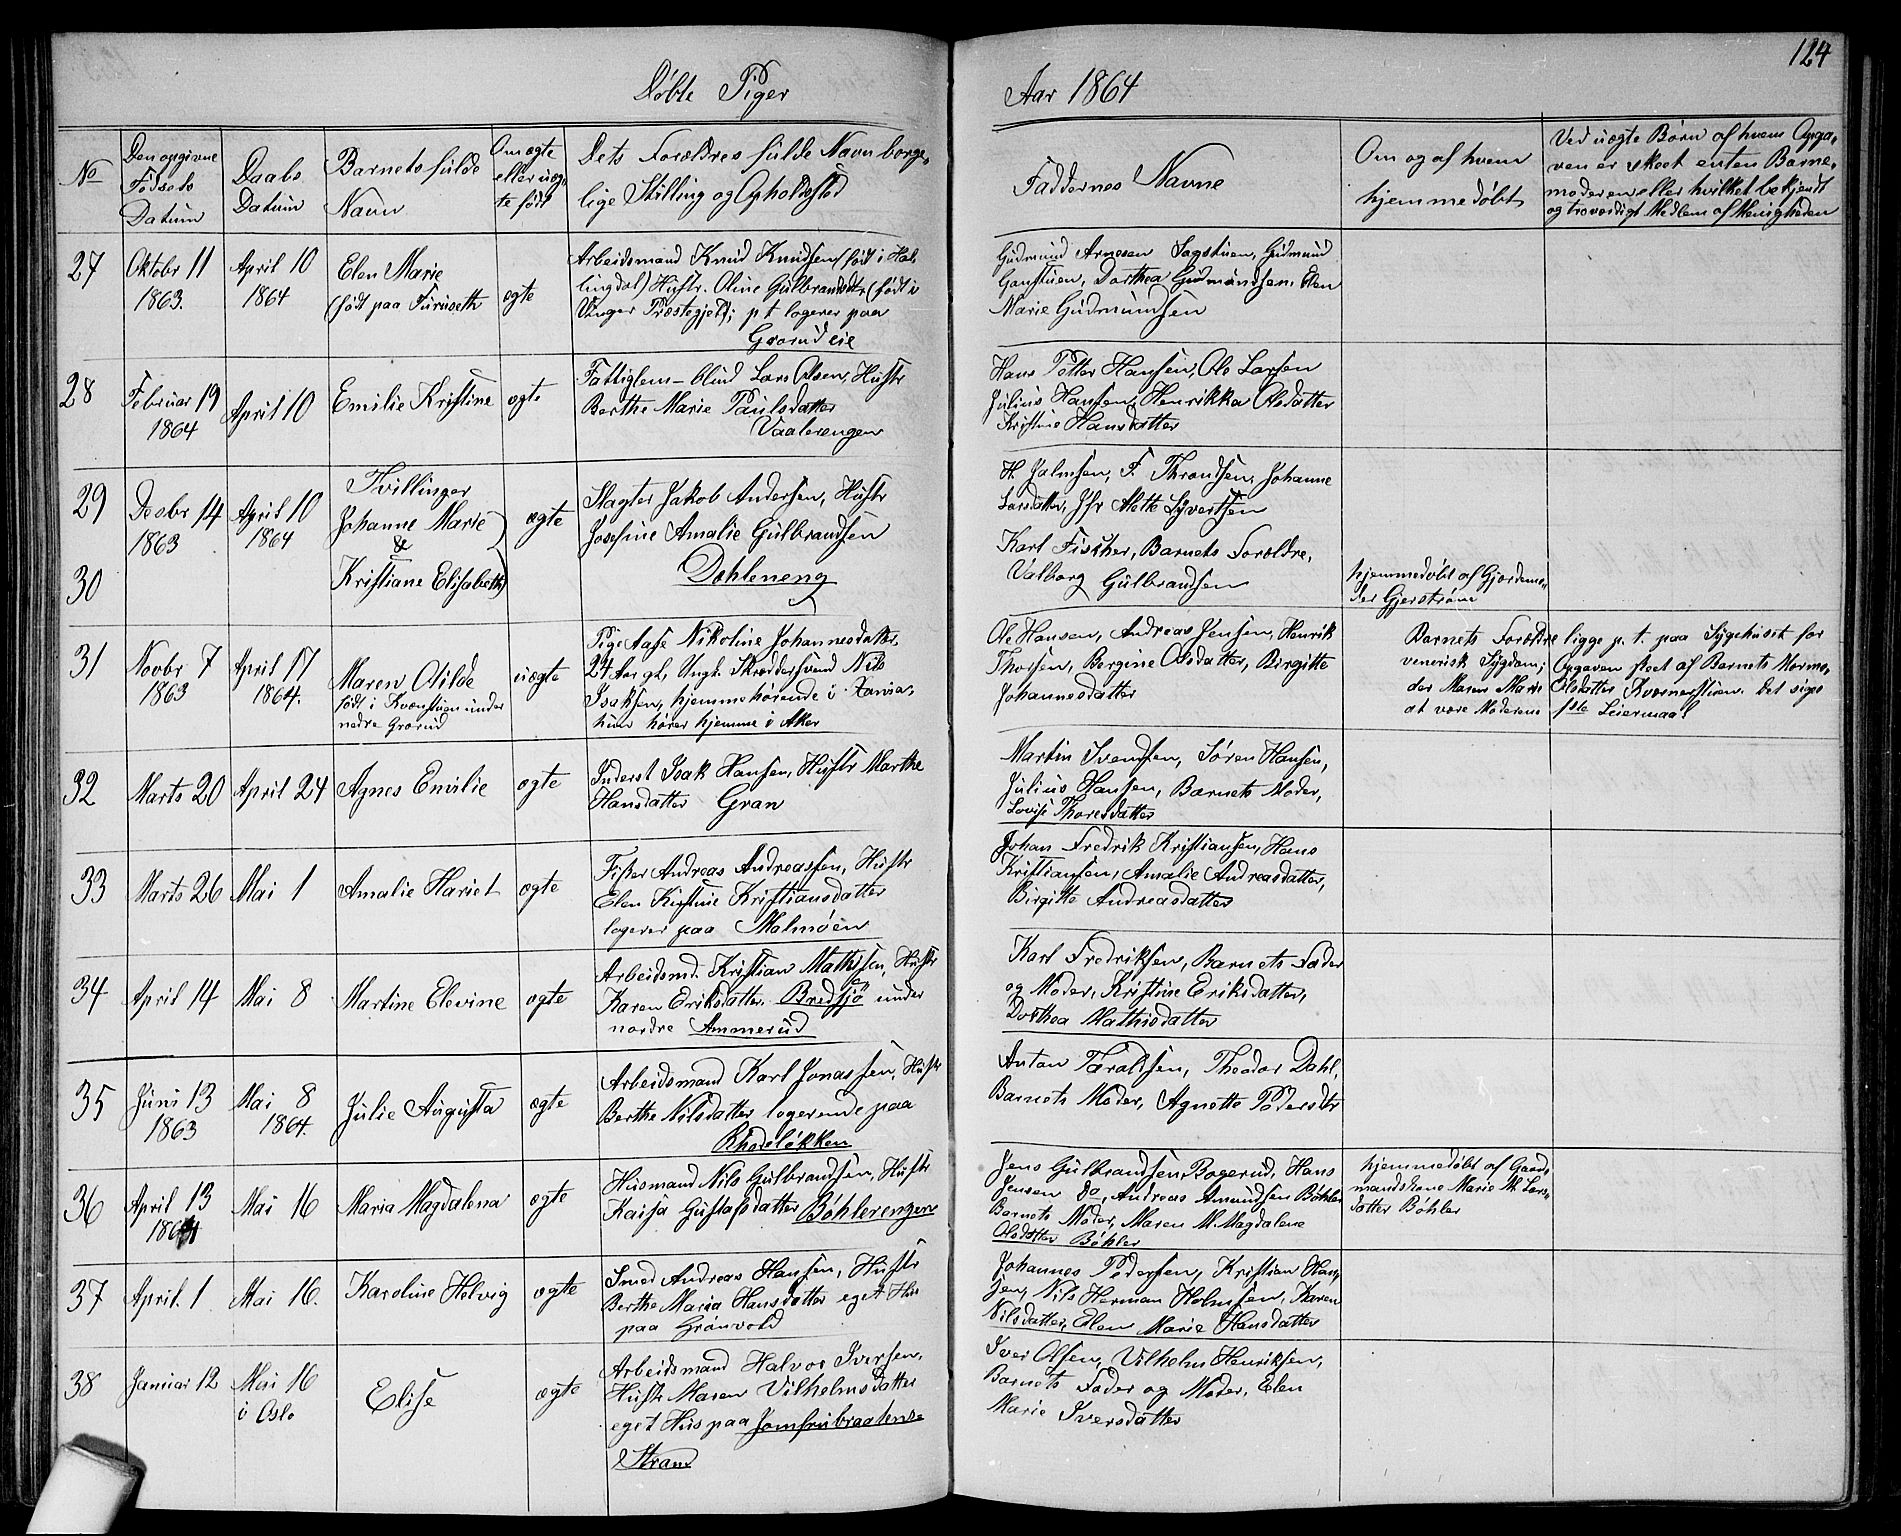 124
Døbte Piger
Aar 1864
No
Den opgivne
Fødsels
Datum
Daabs
Datum
Barnets fulde
Navn
Om ægte
eller uæg-
te født
Dets Forældres fulde Navn borge-
lige Stilling og Opholdsted
Faddernes Navne
Om og af hvem
hjemmedøbt
Ved uægte Børn af hvem Opga-
ven er skeet enten Barne-
moderen eller hvilket bekjendt
og troværdigt Medlem af Menigheden
27
Oktobr 11
1863.
April 10
1864
Elen Marie
(født paa Furuseth
ægte
Arbeidsmand Knud Knudsen (født i Hal-
lingdal) Hustr. Oline Gulbrandsdtr (født i
Vinger Præstegjeld; p t logerer paa
Grorud eie
Gudmund Arnesen Sagstuen, Gudmund
Ganstuen, Dorthea Gudmundsen, Elen
Marie Gudmundsen
28
Februar 19
1864
April 10
Emilie Kristine
ægte
Fattiglem - blind Lars Olsen, Hustr
Berthe Marie Paulsdatter
Vaalerengen
Hans Petter Hansen, Ole Larsen
Julius Hansen, Henrikka Olsdatter
Kristine Hansdatter
29
30
Decbr 14
1863
April 10
1864
Tvillinger
Johanne Marie
&
Kristiane Elisabeth
ægte
Slagter Jakob Andersen, Hustr
Josefine Amalie Gulbrandsen
Dahleneng
H. Jalmsen, F. Throndsen, Johanne
Larsdatter, Jfr Mette Syvertsen
Karl Fischer, Barnets Forældre,
Valborg Gulbrandsen
hjemmedøbt af Gjordemo-
der Gjerstrøm
31
Novbr 7
1863
April 17
1864.
Maren Otilde
født i Kværstuen under
nedre Grorud
uægte
Pige Aase Nikoline Johannesdatter,
24 Aar gl, Ungk. Skræddersvend Nils
Isaksen, hjemmehørende i Xania,
hun hører hjemme i Aker
Ole Hansen, Andreas Jensen, Henrik
Thorsen, Bergine Olsdatter, Birgitte
Johannesdatter
Barnets Forældre ligge p. t. paa Sygehuset for
venerisk Sygdom; Opgaven skeet af Barnets Mormo-
der Maren Marie Olsdatter Kværnerstuen. Det siges
at være Moderens 1ste Leiermaal
32
Marts 20
April 24
Agnes Emilie
ægte
Inderst Isak Hansen, Hustr Marthe
Hansdatter Gran
Martin Svendsen, Søren Hansen,
Julius Hansen, Barnets Moder,
Lovise Thoresdatter
33
Marts 26
Mai 1
Amalie Hariet
ægte
Fisker Andreas Andreassen, Hustr
Elen Kirstine Kristiansdatter
logerer paa Malmøen
Johan Fredrik Kristiansen, Hans
Kristiansen, Amalie Andreasdatter,
Birgitte Andreasdatter
34
April 14
Mai 8
Martine Elevine
ægte
Arbeidsmd. Kristian Mathisen, Hustr
Karen Eriksdatter. Bredsjø under
nordre Ammerud
Karl Fredriksen, Barnets Fader
og Moder, Kristine Eriksdatter,
Dorthea Mathisdatter
35
Juni 13
1863
Mai 8
1864.
Julie Augusta
ægte
Arbeidsmand Karl Jonassen, Hustr
Berthe Nilsdatter logerende paa
Rhodeløkken
Anton Taraldsen, Theodor Dahl,
Barnets Moder, Agnette Pedersdtr
36
April 13
1864
Mai 16
Maria Magdalena
ægte
Husmand Nils Gulbrandsen, Hustr
Kaisa Gustafsdatter Bøhlerengen
Jens Gulbrandsen Bogerud, Hans
Jensen do, Andreas Amundsen Bøhler
Barnets Moder, Maren M. Magdalene
Olsdatter Bøhler
hjemmedøbt af Gaard-
mandskone Marie M. Lars-
datter Bøhler
37
April. 1
Mai 16.
Karoline Helvig
ægte
Smed Andreas Hansen, Hustr
Berthe Maria Hansdatter eget Hus
paa Grønvold
Johannes Pedersen, Kristian Han-
sen, Nils Herman Holmsen, Karen
Nilsdatter, Elen Marie Hansdatter
38
Januar 12
Mai 16
i Oslo
Elise
ægte
Arbeidsmand Halvor Iversen,
Hustr Maren Vilhelmsdatter
eget Hus paa Jomfrubraatens
Strand
Iver Olsen, Vilhelm Henriksen,
Barnets Fader og Moder, Elen
Marie Iversdatter